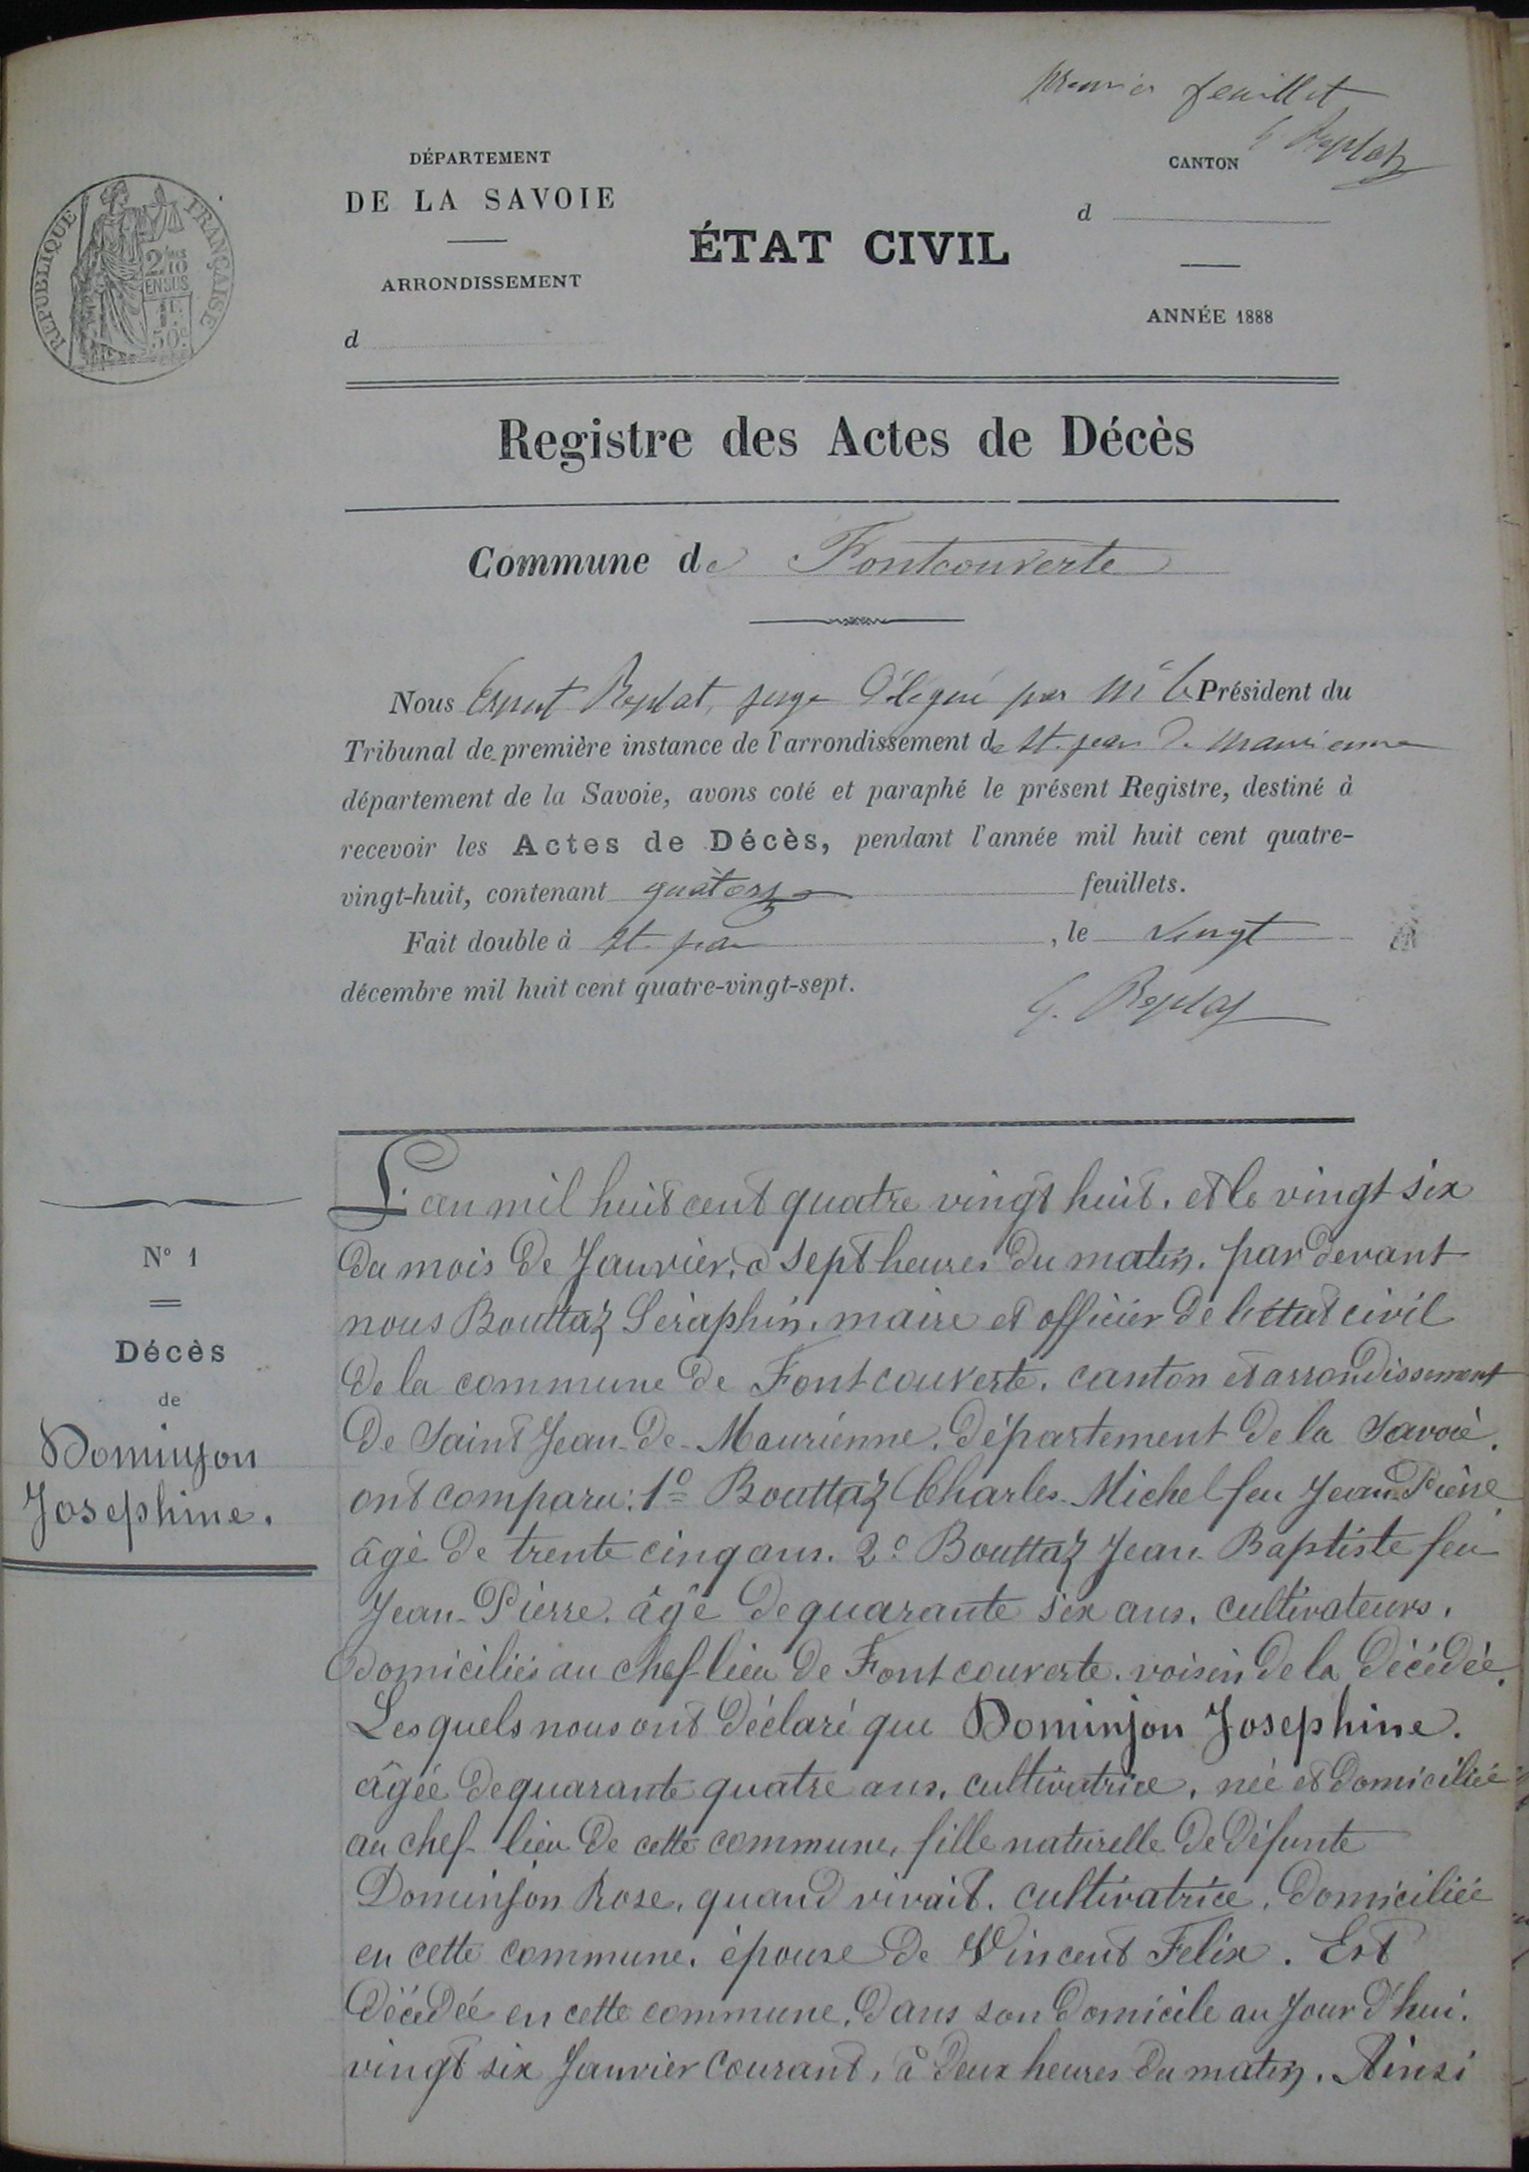 premier feuillet
Replat
RÉPUBLIQUE FRANÇAISE
2/10
EN SUS
1F
50c
DÉPARTEMENT
DE LA SAVOIE
ARRONDISSEMENT
d
ÉTAT CIVIL
CANTON
d
ANNÉE 1888
Registre des Actes de Décès
Commune de Fontcouverte
Nous Replat, juge Délégué par Mr le Président du
Tribunal de première instance de l'arrondissement de St. jean De Maurienne
département de la Savoie, avons coté et paraphé le présent Registre, destiné à
recevoir les Actes de Décès, pendant l'année mil huit cent quatre-
vingt-huit, contenant quatorze feuillets.
Fait double à St. jean, le vingt
décembre mil huit cent quatre-vingt-sept.
Replat
N° 1
Décès
de
Dominjon
Josephine.
L'an mil huit cent quatre vingt huit, et le vingt six
du mois de Janvier, à sept heures du matin, par devant
nous Bouttaz Séraphin, maire et officier de l'état civil
de la commune de Fontcouverte, canton et arrondissement
de Saint Jean-de-Maurienne, département de la Savoie,
ont comparu: 1° Bouttaz Charles-Michel feu Jean-Pierre,
âgé de trente cinq ans. 2° Bouttaz Jean-Baptiste feu
Jean-Pierre, âgé de quarante six ans, cultivateurs,
domiciliés au chef-lieu de Fontcouverte, voisin de la décédée.
Les quels nous ont déclaré que Dominjon Josephine.
âgée de quarante quatre ans, cultivatrice, née et domiciliée
au chef-lieu de cette commune, fille naturelle de défunte
Dominjon Rose, quand vivait, cultivatrice, domiciliée
en cette commune, épouse de Vincent Felix. Est
décédée en cette commune, dans son domicile au Jour d'hui,
vingt six Janvier courant, à deux heures du matin. Ainsi